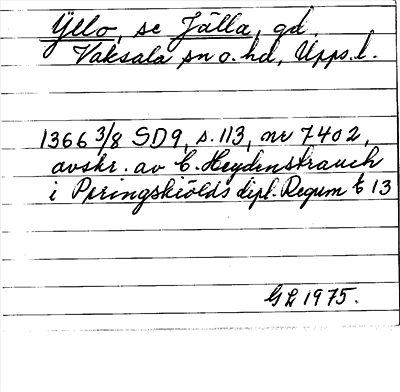 Ÿllo, se Jälla, gd.
Vaksala sn o. hd, Upps. l.
1366 3/8 SD9, s. 113, nr 7402,
avskr. av E. Heydenstrauch
i Peringskiölds dipl. Regum E 13
G L 1975.